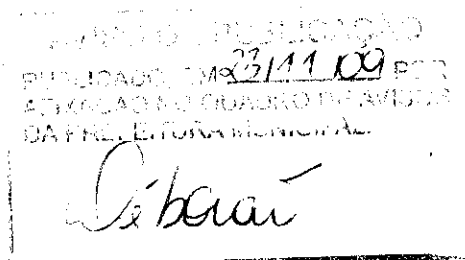 PUBLICAÇÃO
PUBLICADO EM 23/11/09 POR
AFIXAÇÃO NO QUADRO DE AVISOS
DA PREFEITURA MUNICIPAL.